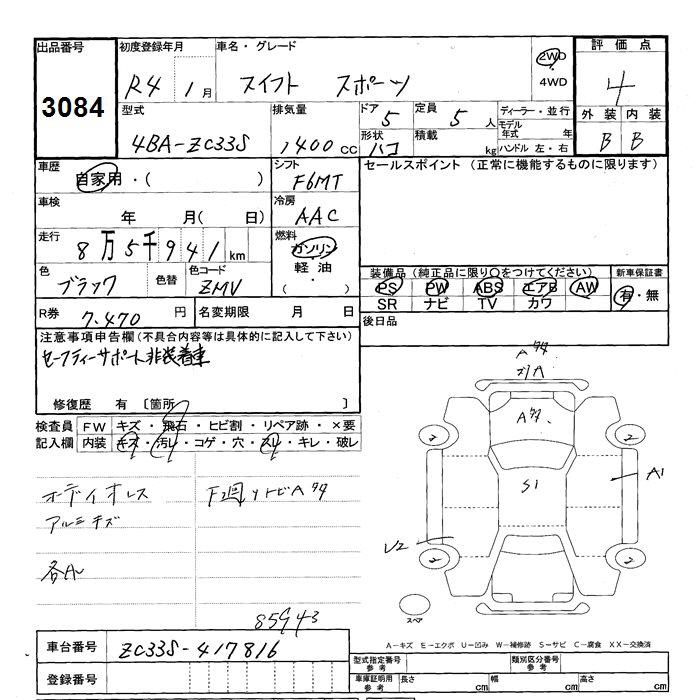 出品番号
3084
初度登録年月
R4 1月
車名・グレード
スイフト スポーツ
2WD
・
4WD
評価点
4
外装 内装
B B
型式
4BA-ZC33S
排気量
1400cc
ドア
5
定員
5人
形状
ハコ
積載
kg
ディーラー・並行
モデル年式 年
ハンドル 左・右
車歴
自家用・( )
シフト
F6MT
セールスポイント (正常に機能するものに限ります)
車検
年 月( 日)
冷房
AAC
走行
8万5千941km
燃料
ガソリン
・
軽油
・
( )
色
ブラック
色替
色コード
ZMV
装備品(純正品に限り○をつけてください)
PS PW ABS エアB AW
SR ナビ TV カワ
新車保証書
有・無
R券
7.470円
名変期限 月 日
後日品
注意事項申告欄(不具合内容等は具体的に記入して下さい)
セーフティーサポート非装着車
修復歴 有 〔箇所 〕
検査員記入欄
FW キズ・飛石・ヒビ割・リペア跡・×要
内装 キズ・汚レ・コゲ・穴・スレ・キレ・破レ
オーディオレス
アルミキズ
各A
85943
S1
A1
U2
2
2
2
2
スペア
A-キズ E-エクボ U-凹み W-補修跡 S-サビ C-腐食 XX-交換済
車台番号
ZC33S-417816
登録番号
型式指定番号
参考
類別区分番号
参考
車庫証明用
参考
長さ cm
幅 cm
高さ cm